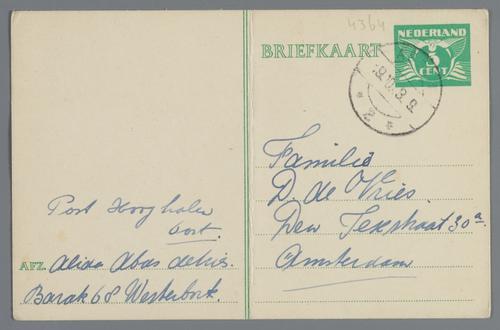 4364
NEDERLAND
3
CENT
BRIEFKAART
Familie
D. de Vries.
Den Texstraat 30a.
Amsterdam
Post Hooghalen
Oost.
AFZ. Alida Abas de Vries.
Barak 68 Westerbork.